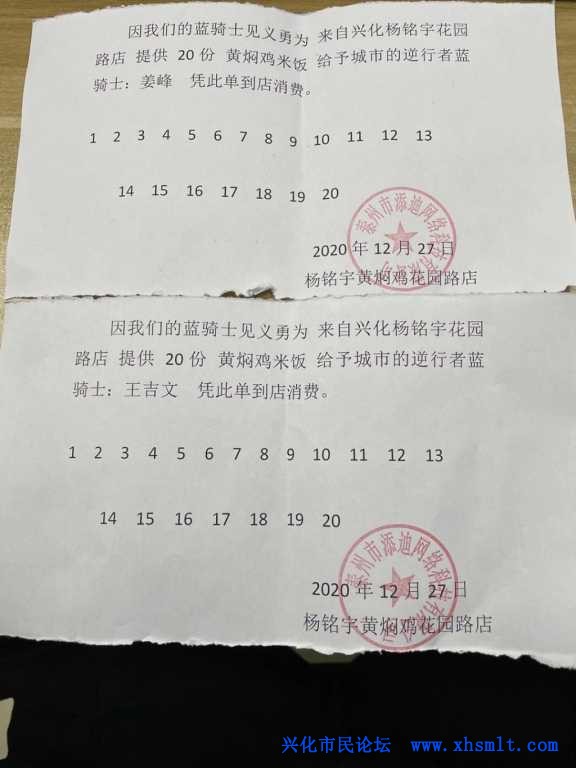 因我们的蓝骑士见义勇为 来自兴化杨铭宇花园
路店 提供 20 份 黄焖鸡米饭 给予城市的逆行者蓝
骑士：姜峰 凭此单到店消费。
1 2 3 4 5 6 7 8 9 10 11 12 13
14 15 16 17 18 19 20
泰州市添迪网络科技有限公司
2020 年 12 月 27 日
杨铭宇黄焖鸡花园路店
因我们的蓝骑士见义勇为 来自兴化杨铭宇花园
路店 提供 20 份 黄焖鸡米饭 给予城市的逆行者蓝
骑士：王吉文 凭此单到店消费。
1 2 3 4 5 6 7 8 9 10 11 12 13
14 15 16 17 18 19 20
泰州市添迪网络科技有限公司
2020 年 12 月 27 日
杨铭宇黄焖鸡花园路店
兴化市民论坛 www.xhsmlt.com